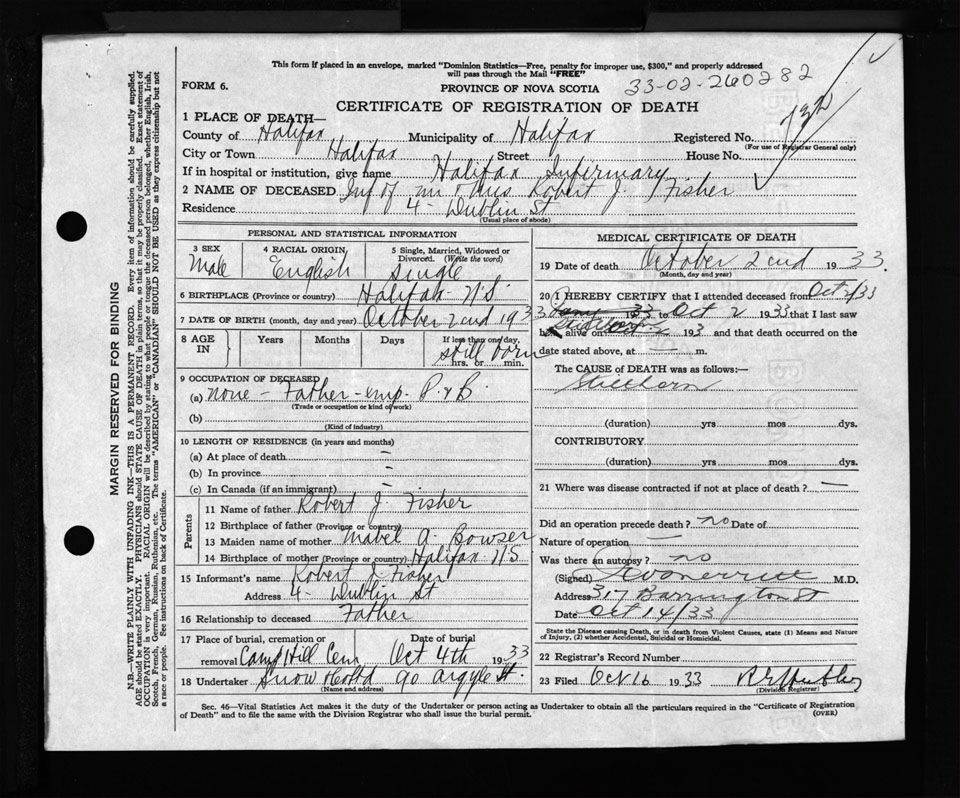 This form if placed in an envelope, marked "Dominion Statistics—Free, penalty for improper use, $300," and properly addressed
will pass through the Mail "FREE"
FORM 6.
PROVINCE OF NOVA SCOTIA
33-02-260282
CERTIFICATE OF REGISTRATION OF DEATH
1 PLACE OF DEATH—
County of Halifax Municipality of Halifax Registered No.
(For use of Registrar General only)
City or Town Halifax Street House No.
If in hospital or institution, give name Halifax Infirmary
2 NAME OF DECEASED Inf of Mr & Mrs Robert J. Fisher
Residence 4 - Dublin St
(Usual place of abode)
PERSONAL AND STATISTICAL INFORMATION
3 SEX
Male
4 RACIAL ORIGIN
English
5 Single, Married, Widowed or
Divorced. (Write the word)
single
6 BIRTHPLACE (Province or country) Halifax N.S.
7 DATE OF BIRTH (month, day and year) October 2nd 1933
8 AGE
IN
Years
Months
Days
If less than one day,
still born
hrs. or min.
9 OCCUPATION OF DECEASED
(a) None - Father - emp. P. & B.
(Trade or occupation or kind of work)
(b)
(Kind of industry)
10 LENGTH OF RESIDENCE (in years and months)
(a) At place of death –
(b) In province –
(c) In Canada (if an immigrant) –
Parents
11 Name of father Robert J. Fisher
12 Birthplace of father (Province or country)
13 Maiden name of mother Mabel A. Bowser
14 Birthplace of mother (Province or country) Halifax N.S
15 Informant's name Robert J. Fisher
Address 4 - Dublin St
16 Relationship to deceased Father
17 Place of burial, cremation or Date of burial
removal Camp Hill Cem Oct 4th 1933
18 Undertaker Snow & Co Ltd 90 Argyle St.
(Name and address)
MEDICAL CERTIFICATE OF DEATH
19 Date of death October 2nd 1933.
(Month, day and year)
20 I HEREBY CERTIFY that I attended deceased from Oct 2/33
1933 to Oct 2 1933 that I last saw
h alive on 193 and that death occurred on the
date stated above, at — m.
The CAUSE of DEATH was as follows:—
Stillborn
(duration) yrs mos dys.
CONTRIBUTORY
(duration) yrs mos dys.
21 Where was disease contracted if not at place of death? —
Did an operation precede death? no Date of
Nature of operation —
Was there an autopsy? no
(Signed) M.D.
Address 317 Barrington St
Date Oct 14/33
State the Disease causing Death, or in death from Violent Causes, state (1) Means and Nature
of Injury, (2) whether Accidental, Suicidal or Homicidal.
22 Registrar's Record Number
23 Filed Oct 16 1933
(Division Registrar)
Sec. 46—Vital Statistics Act makes it the duty of the Undertaker or person acting as Undertaker to obtain all the particulars required in the "Certificate of Registration
of Death" and to file the same with the Division Registrar who shall issue the burial permit.
(OVER)
MARGIN RESERVED FOR BINDING
N.B.—WRITE PLAINLY WITH UNFADING INK—THIS IS A PERMANENT RECORD. Every item of information should be carefully supplied.
AGE should be stated EXACTLY. PHYSICIANS should STATE CAUSE OF DEATH in plain terms, so that it may be properly classified. Exact statement of
OCCUPATION is very important. RACIAL ORIGIN will be described by stating to what people or tongue the deceased person belonged, whether English, Irish,
Scotch, French, German, Russian, Ruthenian, etc. The terms "AMERICAN" or "CANADIAN" SHOULD NOT BE USED as they express citizenship but not
a race or people. See instructions on back of Certificate.